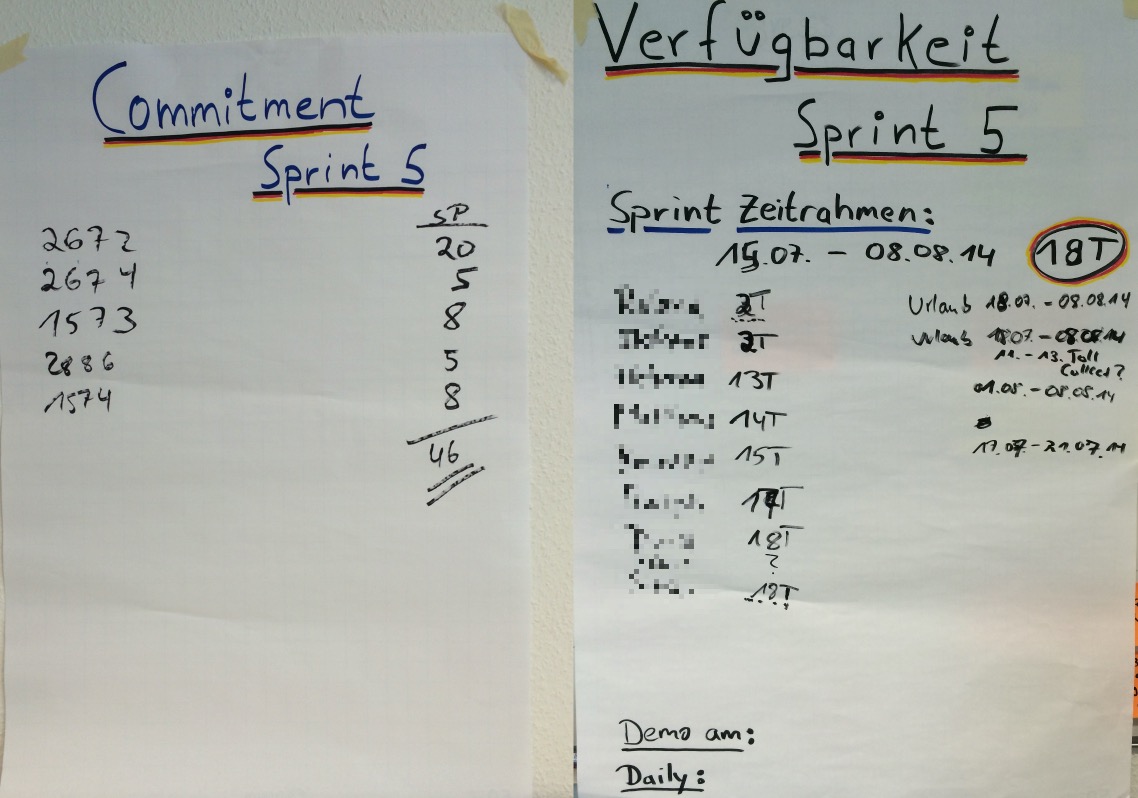 Commitment
Sprint 5
SP
2672 20
2674 5
1573 8
2886 5
1574 8
46
Verfügbarkeit
Sprint 5
Sprint Zeitrahmen:
15.07. - 08.08.14 18T
2T Urlaub 18.07. - 08.08.14
2T Urlaub 18.07 - 08.08.14
11. - 13. Toll
Collect?
13T 01.08. - 08.08.14
14T
15T 17.07. - 21.07.14
17T
18T
?
18T
Demo am:
Daily: